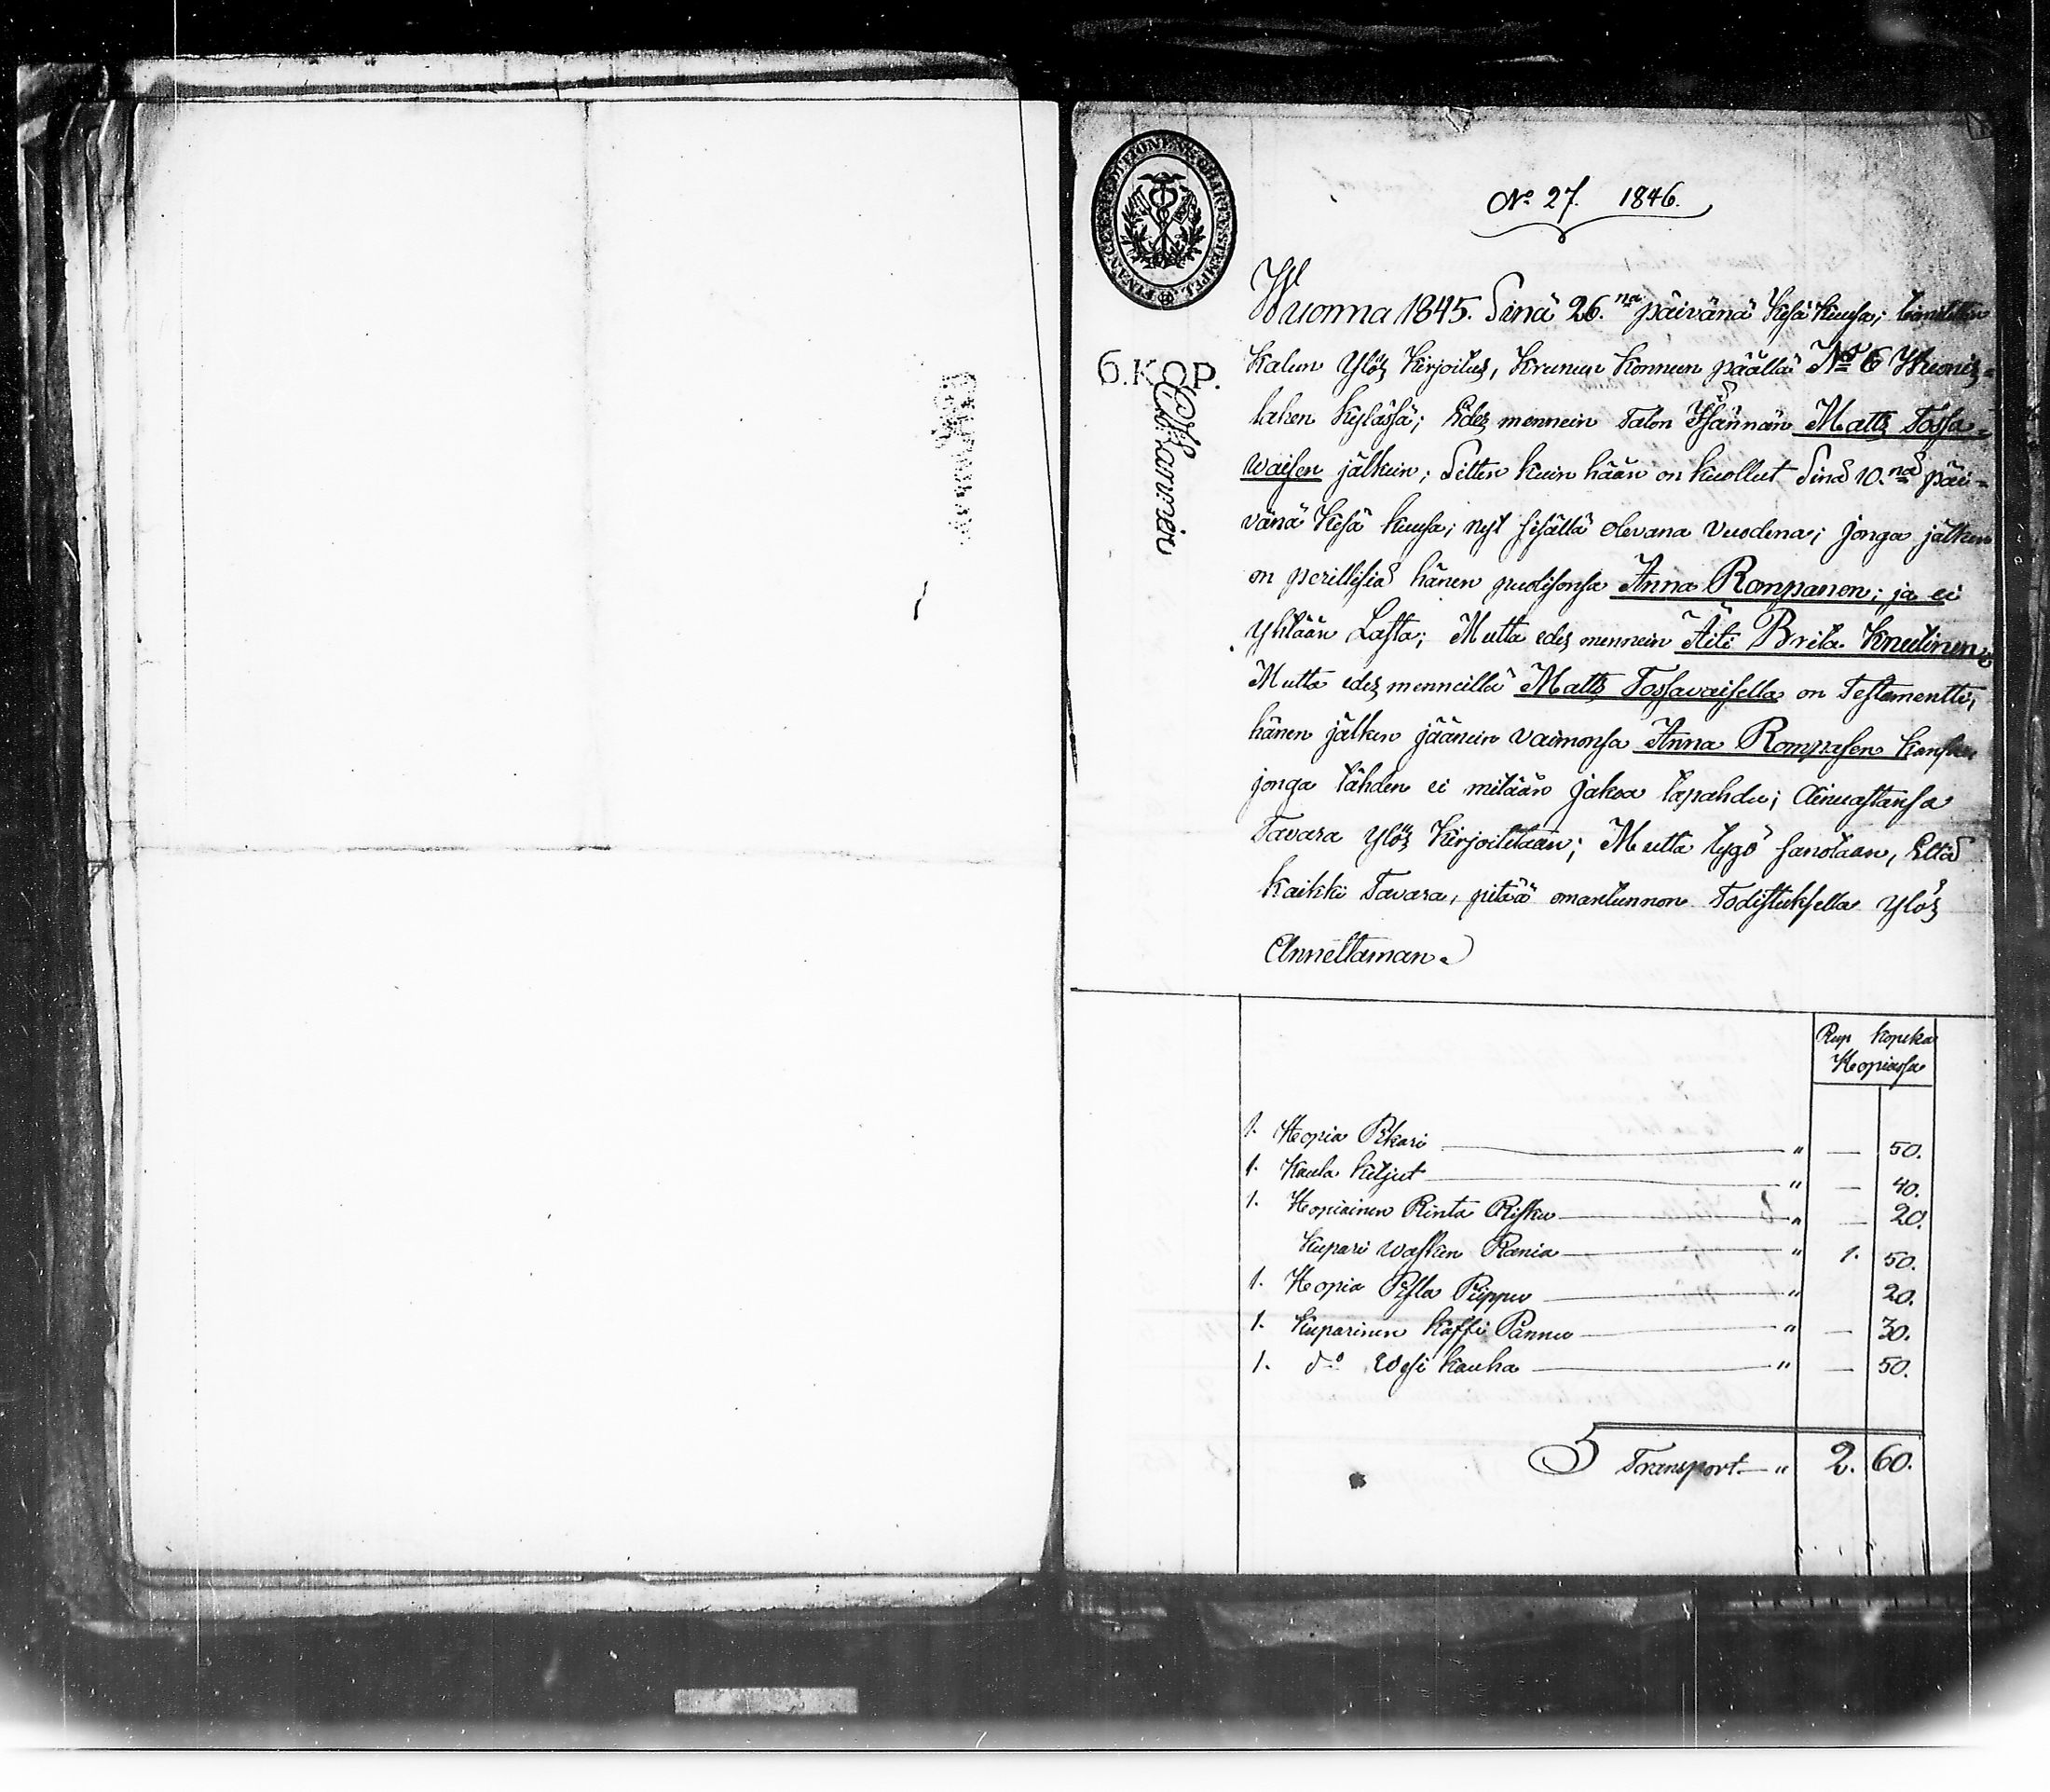 No 27. 1846.
FINANCE EXPEDITIONENS CHARTÆ STEMPEL
6.KOP.
Wuonna 1845. Sinä 26.na päivänä Kesä Kuusa;
Kalun Ylöz Kirjoitus, Krunun Konnun päällä No 6 Wuoniz=
lahen Kylässä; Edez mennein Talon Isännän Matts Tossa=
waisen jälkein; Sitten kuin hään on kuollut Sinä 10.nä päi=
vänä Kesä kuusa; nyt sisällä olevana vuodena; jonga jälken
on perillisiä hänen puolisonsa Anna Rompanen; ja ei
yhtään Lasta; Mutta edez mennein Äiti Brita Knutinen
Mutta edez menneillä Matts Tossavaisella on Testamentti,
hänen jälken jäänein vaimonsa Anna Rompasen Kansa
jonga tähden ei mitään jakoa tapahdu; Ainuastansa
Tavara ylöz Kirjoitetaan; Mutta tygö sanotaan, Että
kaikki Tavara, pitää omantunnon Todistuksella ylöz
Annettaman.
Rup kopeka
Hopiassa
1. Hopia Pikari " — 50.
1. Kaula kiljut " — 40.
1. Hopiainen Rinta Risku " — 20.
Kupari wasken Rænia " 1. 50.
1. Hopia Pisla Piippu " 20.
1. Kuparinen Kaffi Pannu " — 30.
1. do Wesi kauha " — 50.
Transport " 2. 60.